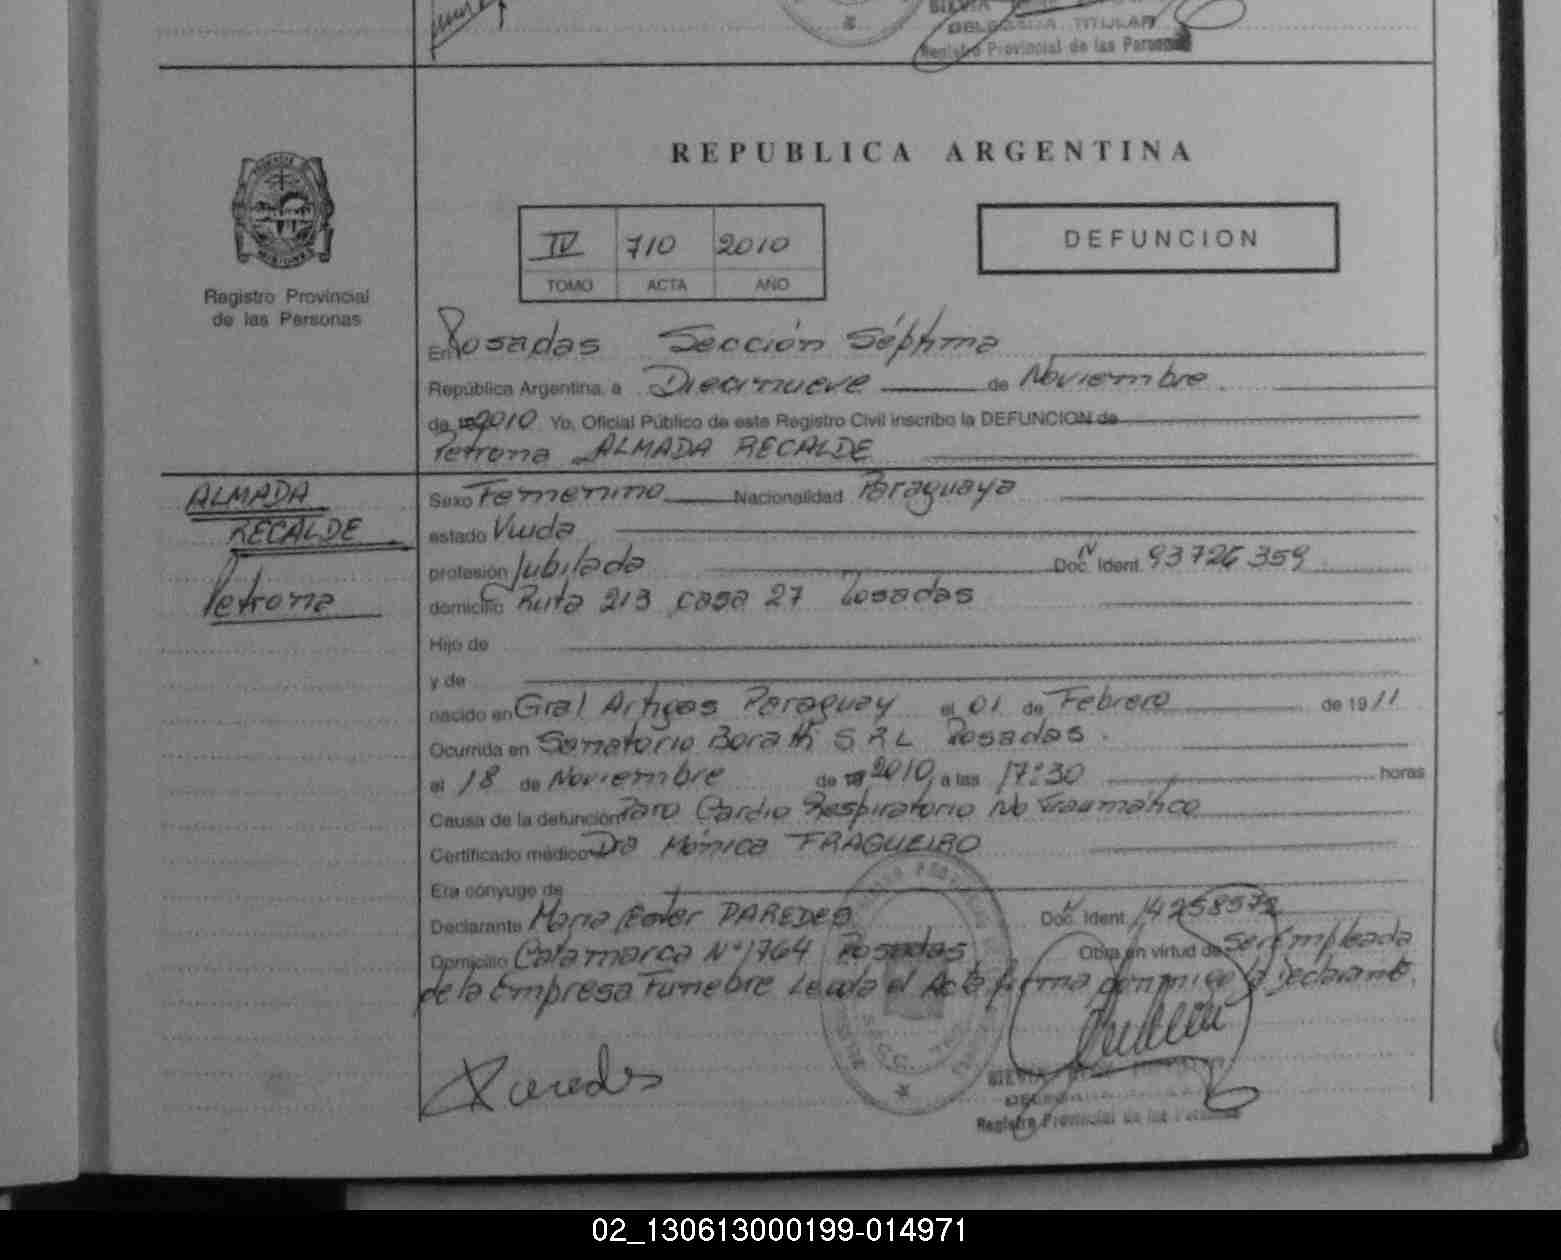 DELEGADA TITULAR
Registro Provincial de las Personas
REPUBLICA ARGENTINA
IV 710 2010
TOMO ACTA AÑO
DEFUNCION
MISIONES
Registro Provincial
de las Personas
En Posadas Sección Séptima
República Argentina, a Diecinueve de Noviembre
de 2010 Yo, Oficial Público de este Registro Civil inscribo la DEFUNCION de
Petrona ALMADA RECALDE
ALMADA
RECALDE
Petrona
Sexo Femenino Nacionalidad Paraguaya
estado Viuda
profesión Jubilada Doc. Ident. N 93726359
domicilio Ruta 213 casa 27 Posadas
Hijo de
y de
nacido en Gral Artigas Paraguay el 01 de Febrero de 1911
Ocurrida en Sanatorio Boratti SRL Posadas.
el 18 de Noviembre de 2010, a las 17:30 horas
Causa de la defunción Paro Cardio Respiratorio No Traumático
Certificado médico Dra Mónica FRAGUEIRO
Era cónyuge de
Declarante María Ester PAREDES Doc. Ident. N 14258572
Domicilio Catamarca N° 1764 Posadas Obra en virtud de ser Empleada
de la Empresa Funebre Leida el Acta firma conmigo la declarante.
Paredes
Registro Provincial de las Personas
02_130613000199-014971